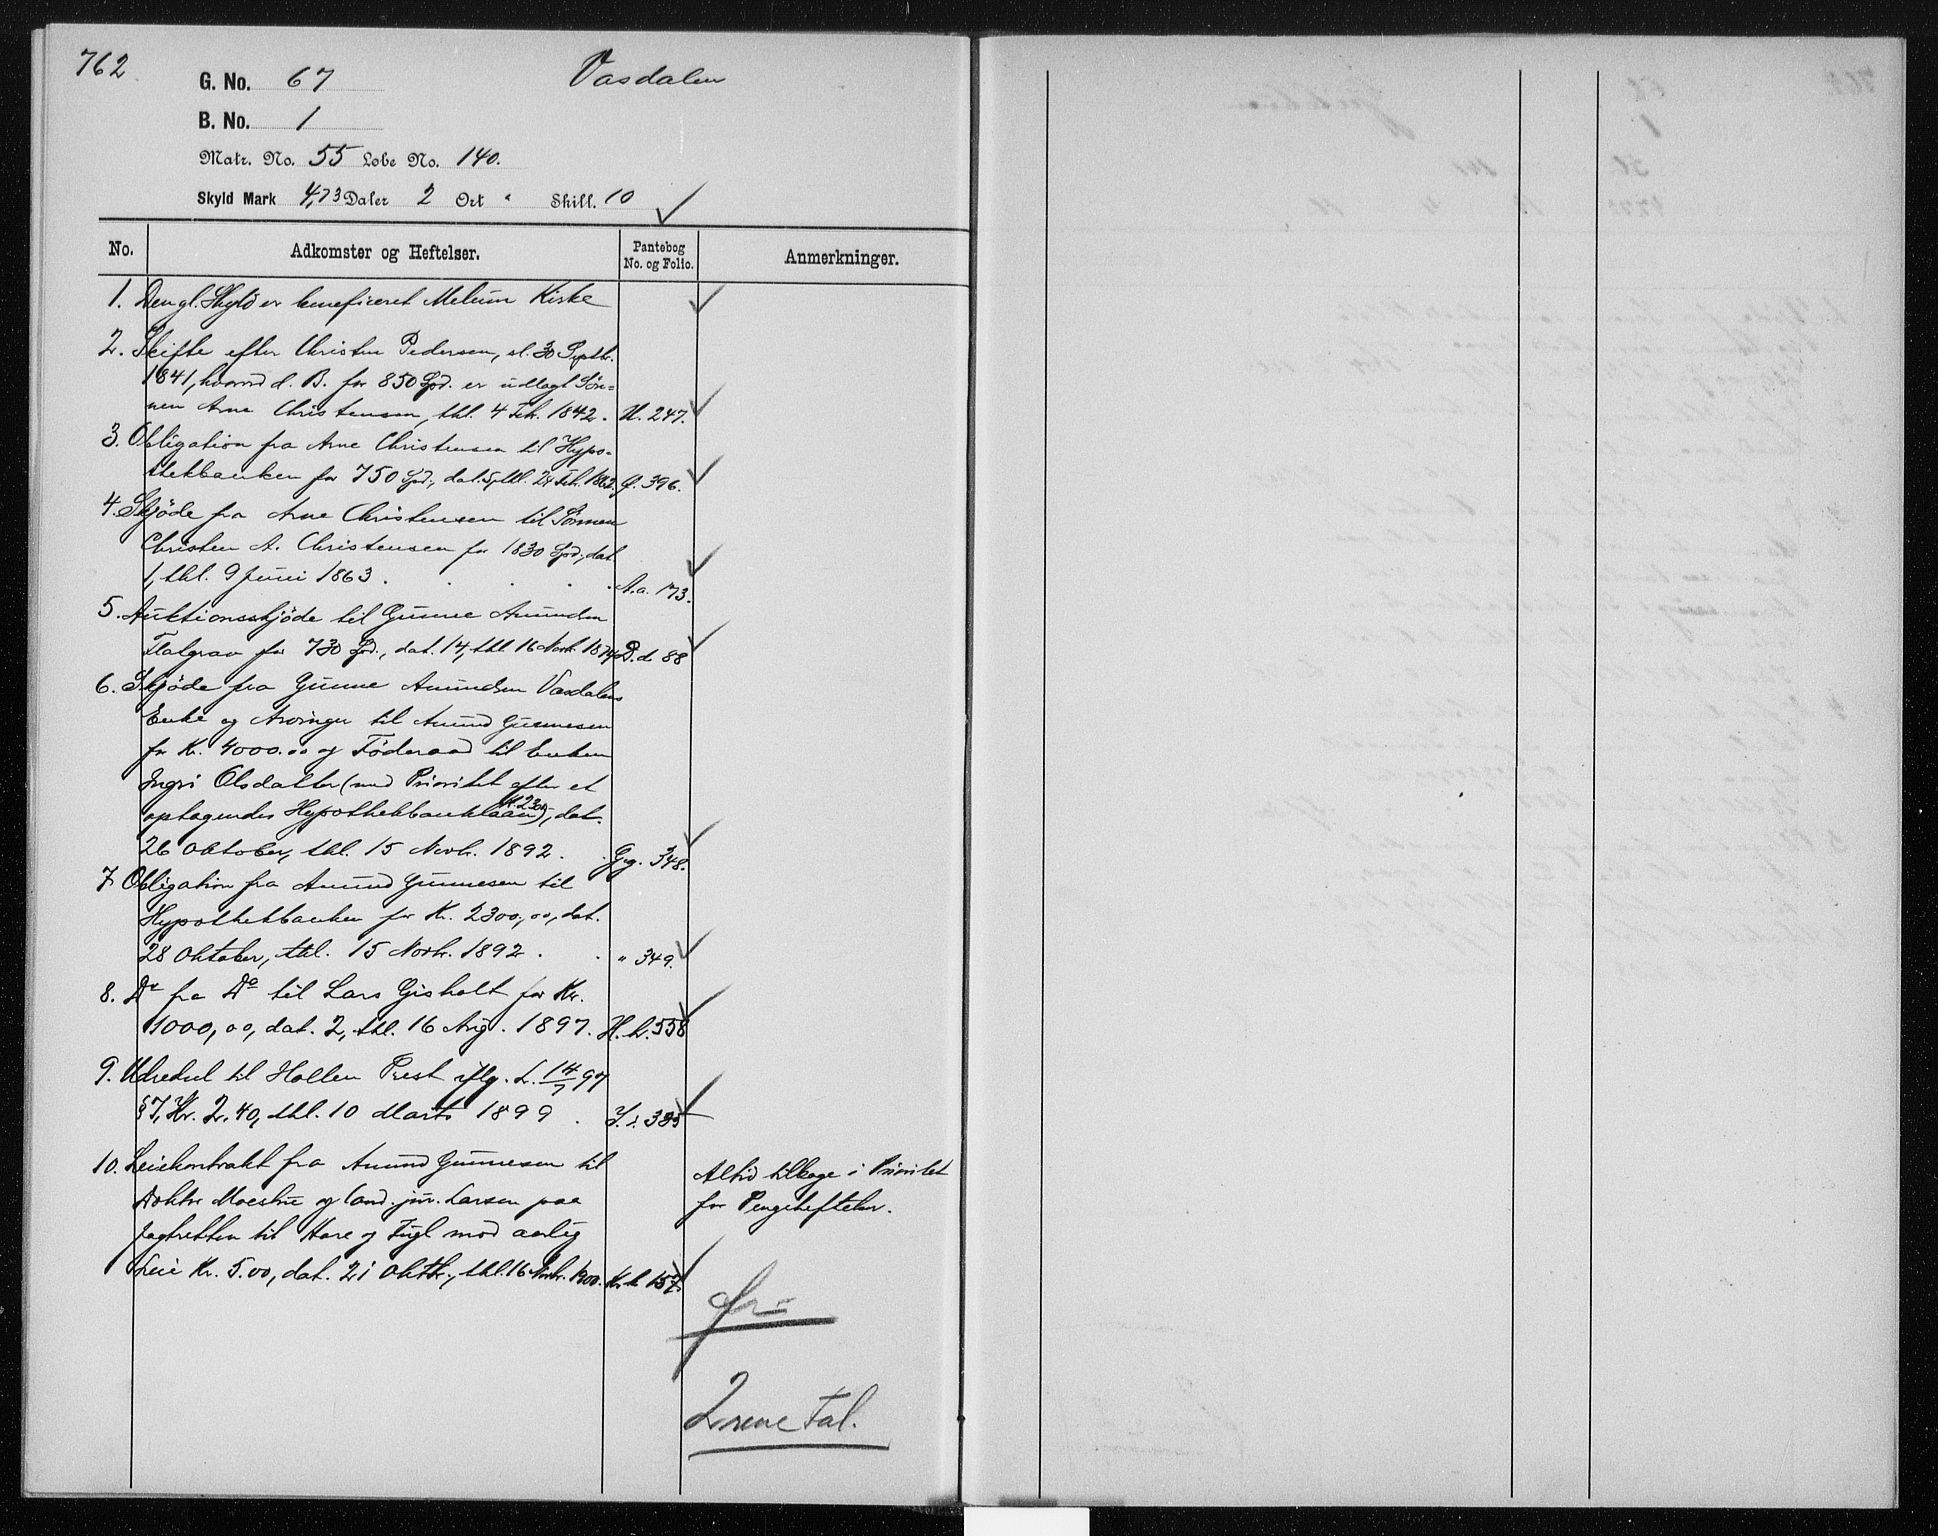 762
G. No. 67 Vasdalen
B. No. 1
Matr. No. 55 Løbe No. 140.
Skyld Mark 4,73 Daler 2 Ort " Skill. 10
No. Adkomster og Heftelser. Pantebog No. og Folio. Anmerkninger.
1. Den gl. Skyld er beneficeret Melum Kirke
2. Skifte efter Christen Pedersen, sl. 30 Septbr.
1841, hvorved d. B. for 850 Spd. er udlagt Søn=
nen Arne Christensen, thl. 4 Feb. 1842. U. 247.
3. Obligation fra Arne Christensen til Hypo-
thekbanken for 750 Spd., dat. 5, thl. 24 Feb. 1862. Q. 396.
4. Skjöde fra Arne Christensen til Sönnen
Christen A. Christensen for 1830 Spd., dat
1, thl. 9 Juni 1863. A.a. 173.
5. Auktionsskjöde til Gunne Amundsen
Flatgrav for 730 Spd., dat. 14, thl. 16 Novb. 1874 D.d. 88
6. Skjöde fra Gunne Amundsen Vasdalens
Enke og Arvinger til Amund Gunnesen
for Kr. 4000.00 og Föderaad til Enken
Ingri Olsdatter (med Prioritet efter et
optagendes Hypothekbanklaan Kr. 2300), dat.
26 Oktober, thl. 15 Novb. 1892. G.g. 348.
7 Obligation fra Amund Gunnesen til
Hypothekbanken for Kr. 2300,00, dat.
28 Oktober, thl. 15 Novbr. 1892. " 349.
8. Do fra Do til Lars Gisholt for Kr.
1000,00, dat. 2, thl. 16 Aug. 1897. H.h. 558
9. Udredsel til Hollen Prest iflg. L. 14/7 97
§ 7, Kr. 2.40, thl. 10 Marts 1899. I.i. 385
10. Leiekontrakt fra Amund Gunnesen til
Doktor Moestue og Cand. jur. Larsen paa
Jagtretten til Hare og Fugl mod aarlig
Leie Kr. 5.00, dat. 21 Oktbr., thl. 16 Novbr. 1900. K.k. 157.
Altid tilbage i Prioritet
for Pengeheftelser.
2 rene Tal.